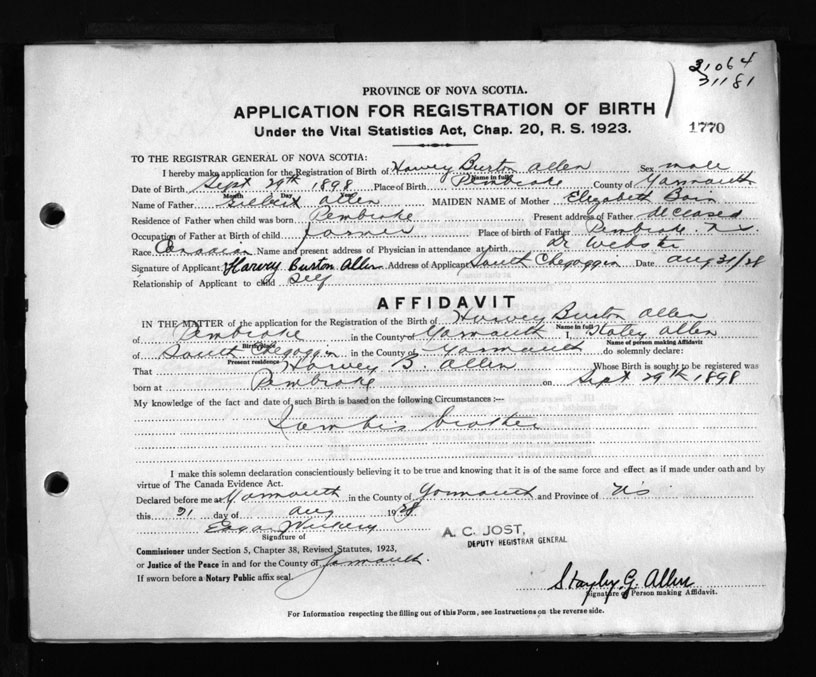 21064
31181
PROVINCE OF NOVA SCOTIA.
APPLICATION FOR REGISTRATION OF BIRTH
Under the Vital Statistics Act, Chap. 20, R. S. 1923.
1770
TO THE REGISTRAR GENERAL OF NOVA SCOTIA:
I hereby make application for the Registration of Birth of Harvey Burton Allen Sex male
Name in full
Date of Birth Sept 29th 1898 Place of Birth Pembroke County of Yarmouth
Month Day
Name of Father Allen MAIDEN NAME of Mother Elizabeth Bain
Residence of Father when child was born Pembroke Present address of Father deceased
Occupation of Father at Birth of child farmer Place of birth of Father Pembroke, N.S.
Race Canadian Name and present address of Physician in attendance at birth Dr Webster
Signature of Applicant Harvey Burton Allen Address of Applicant South Chegoggin Date Aug 31/28
Relationship of Applicant to child Self
AFFIDAVIT
IN THE MATTER of the application for the Registration of the Birth of Harvey Burton Allen
Name in full
of Pembroke in the County of Yarmouth I, Allen
Birthplace Name of person making Affidavit
of South Chegoggin in the County of Yarmouth do solemnly declare:
Present residence
That Harvey B. Allen Whose Birth is sought to be registered was
born at Pembroke on Sept 29th 1898
My knowledge of the fact and date of such Birth is based on the following Circumstances:—
I am his brother
I make this solemn declaration conscientiously believing it to be true and knowing that it is of the same force and effect as if made under oath and by
virtue of The Canada Evidence Act.
Declared before me at Yarmouth in the County of Yarmouth and Province of N.S.
this 31 day of Aug 1928
Signature of
A. C. JOST,
DEPUTY REGISTRAR GENERAL
Commissioner under Section 5, Chapter 38, Revised Statutes, 1923,
or Justice of the Peace in and for the County of Yarmouth.
If sworn before a Notary Public affix seal.
Stayley G. Allen
Signature of Person making Affidavit.
For Information respecting the filling out of this Form, see Instructions on the reverse side.